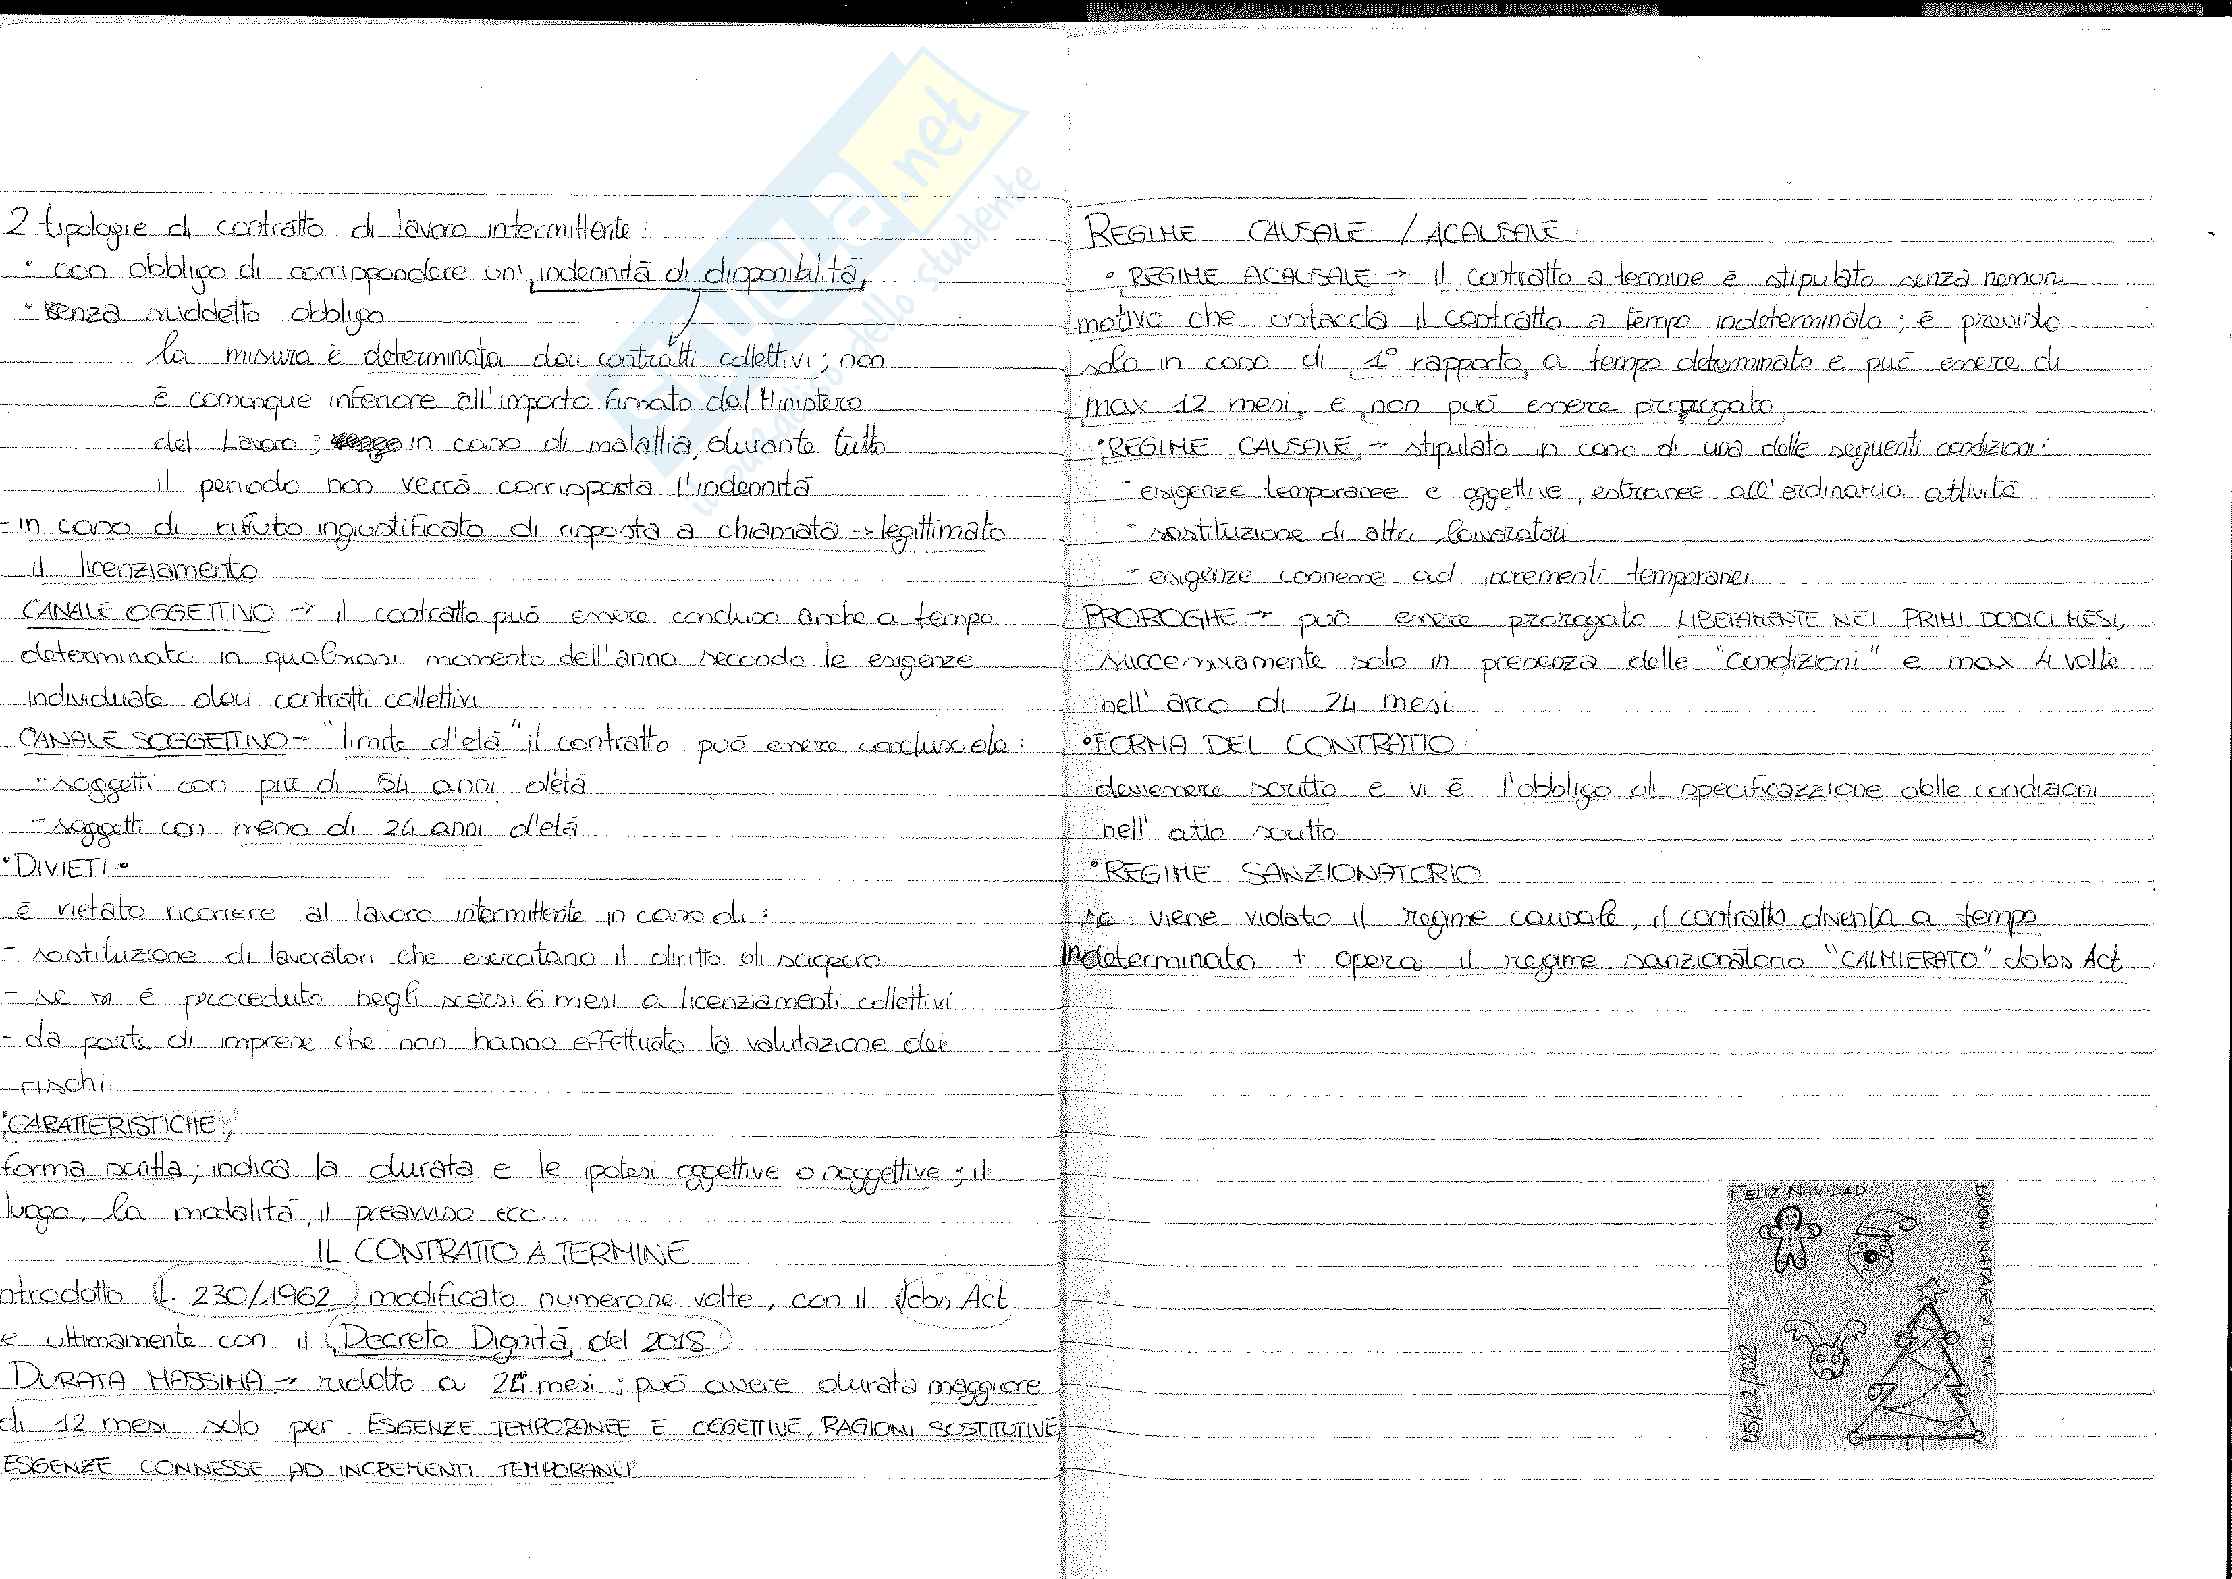 2 tipologie di contratto di lavoro intermittente:
• con obbligo di corrispondere un' indennità di disponibilità,
• senza suddetto obbligo
la misura è determinata dai contratti collettivi; non
è comunque inferiore all'importo fissato dal Ministero
del Lavoro; in caso di malattia, durante tutto
il periodo non verrà corrisposta l'indennità
- in caso di rifiuto ingiustificato di risposta a chiamata → legittimato
il licenziamento
CANALE OGGETTIVO → il contratto può essere concluso anche a tempo
determinato in qualsiasi momento dell'anno secondo le esigenze
individuate dai contratti collettivi
CANALE SOGGETTIVO - "limite d'età" il contratto può essere concluso da:
- soggetti con più di 54 anni d'età
- soggetti con meno di 24 anni d'età
• DIVIETI •
è vietato ricorrere al lavoro intermittente in caso di:
- sostituzione di lavoratori che esercitano il diritto di sciopero
- se si è proceduto negli scorsi 6 mesi a licenziamenti collettivi
- da parte di imprese che non hanno effettuato la valutazione dei
rischi
• CARATTERISTICHE:
forma scritta; indica la durata e le ipotesi oggettive o soggettive; il
luogo, la modalità, il preavviso ecc...
IL CONTRATTO A TERMINE
ntrodotto (L. 230/1962) modificato numerose volte, con il Jobs Act
e ultimamente con il Decreto Dignità, del 2018
DURATA MASSIMA → ridotto a 24 mesi; può avere durata maggiore
di 12 mesi solo per ESIGENZE TEMPORANEE E OGGETTIVE, RAGIONI SOSTITUTIVE
ESIGENZE CONNESSE AD INCREMENTI TEMPORANEI
REGIME CAUSALE / ACAUSALE
• REGIME ACAUSALE → il contratto a termine è stipulato senza nessun
motivo che ostacola il contratto a tempo indeterminato; è previsto
solo in caso di 1° rapporto, a tempo determinato e può essere di
max 12 mesi, e non può essere prorogato
• REGIME CAUSALE → stipulato in caso di una delle seguenti condizioni:
- esigenze temporanee e oggettive, estranee all'ordinaria attività
- sostituzione di altri lavoratori
- esigenze connesse ad incrementi temporanei
PROROGHE → può essere prorogato LIBERAMENTE NEI PRIMI DODICI MESI,
successivamente solo in presenza delle "condizioni" e max 4 volte
nell' arco di 24 mesi
• FORMA DEL CONTRATTO
dev'essere scritto e vi è l'obbligo di specificazzione delle condizioni
nell' atto scritto
• REGIME SANZIONATORIO
se viene violato il regime causale, il contratto diventa a tempo
indeterminato + opera il regime sanzionatorio "CALMIERATO" Jobs Act
FELIZ NAVIDAD